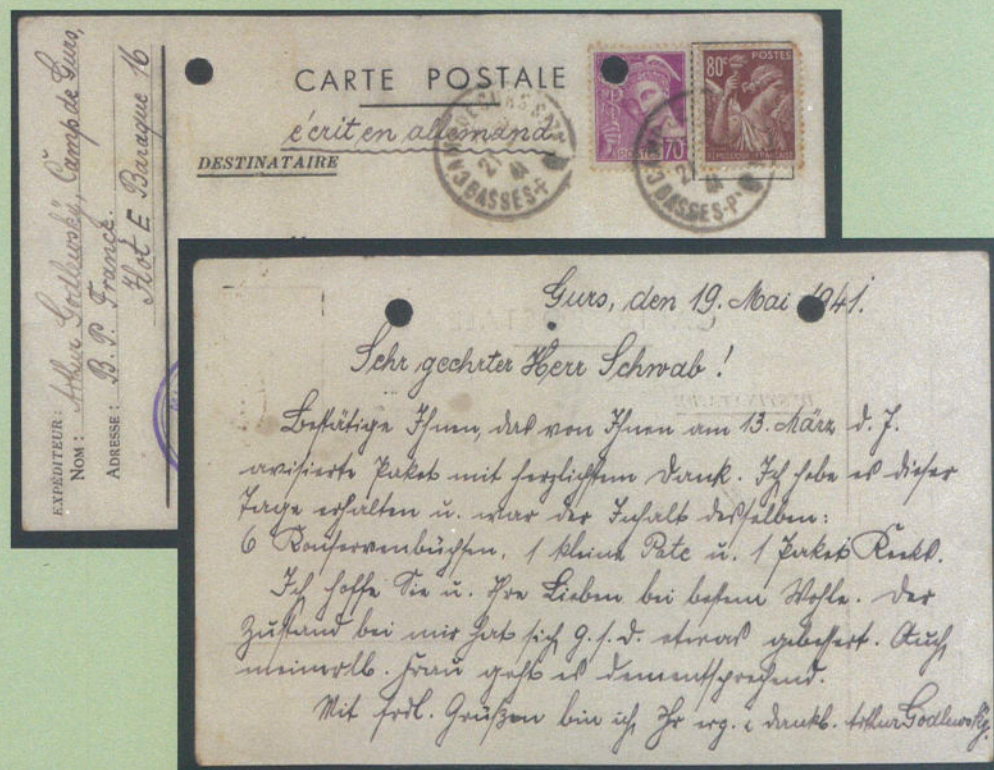 EXPÉDITEUR:
NOM: Arthur Godlewsky, Camp de Gurs,
ADRESSE: B. P. France.
Ilot E Baraque 16
CARTE POSTALE
écrit en allemand
DESTINATAIRE
CAMP DE GURS
BASSES-P
POSTES 70c
80c POSTES
REPUBLIQUE FRANÇAISE
BASSES-P
Gurs, den 19. Mai 1941.
Sehr geehrter Herr Schwab!
Bestätige Ihnen, das von Ihnen am 13. März d. J.
avisierte Paket mit herzlichstem Dank. Ich habe es dieser
Tage erhalten u. war der Inhalt desselben:
6 Konservenbüchsen, 1 kleine Pate u. 1 Paket
Ich hoffe Sie u. Ihre Lieben bei bestem Wohle. Der
Zustand bei mir hat sich G. s. D. etwas gebessert. Auch
meiner lb. Frau geht es dementsprechend.
Mit frdl. Grüßen bin ich Ihr erg. u. dankb. Arthur Godlewsky.